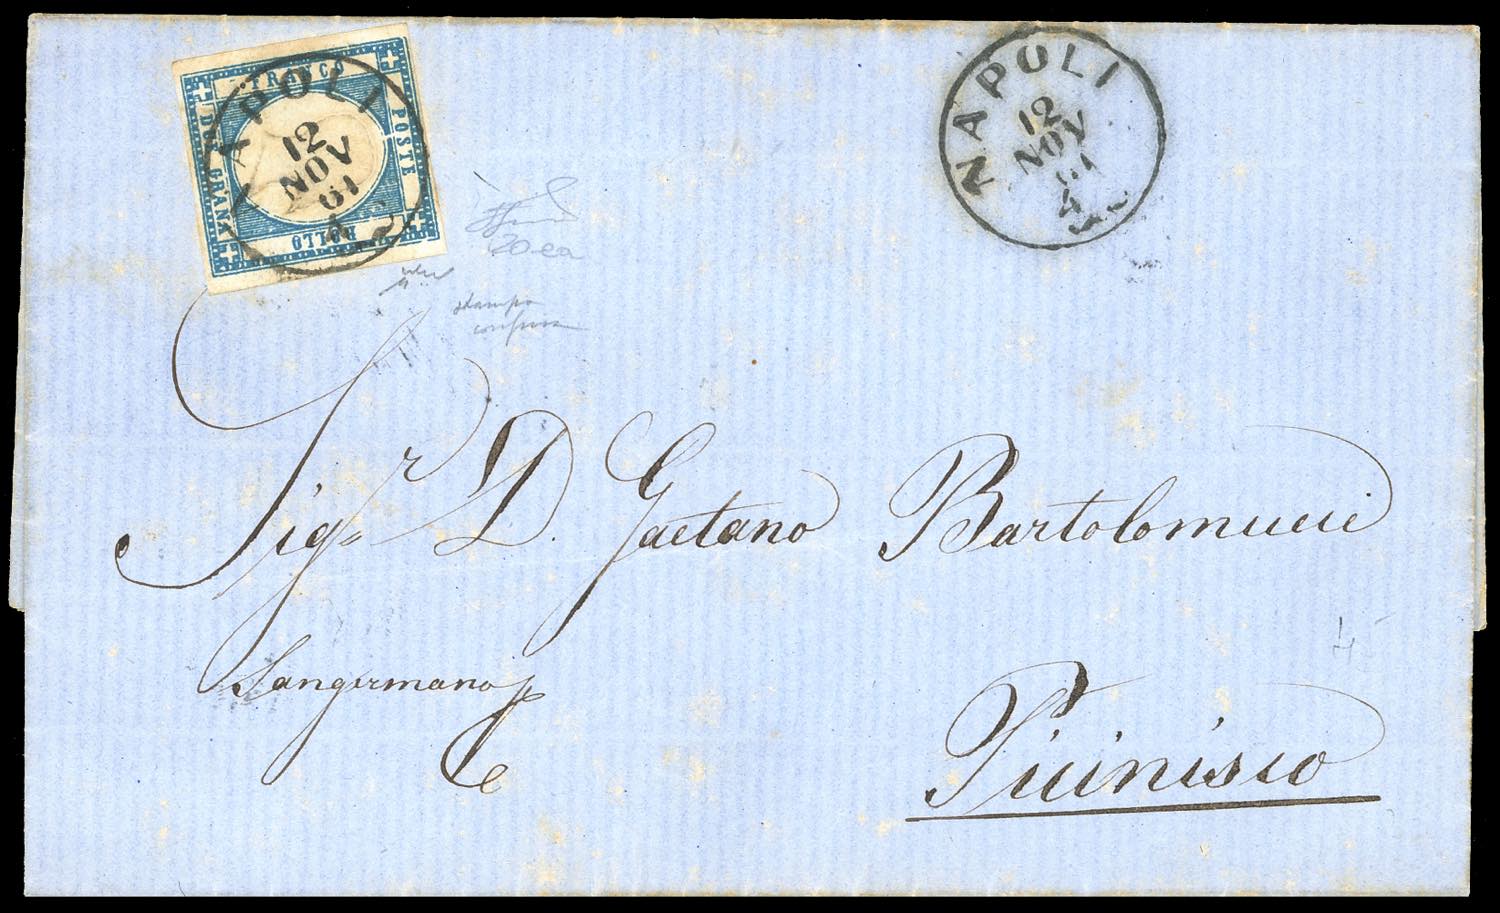 FRANCO
POSTE
BOLLO
DUE GRANA
NAPOLI
12
NOV
61
4
NAPOLI
12
NOV
61
4
20ea
stampa
confusa
Sigr D. Gaetano Bartolomucci
Sangermano p
Picinisco